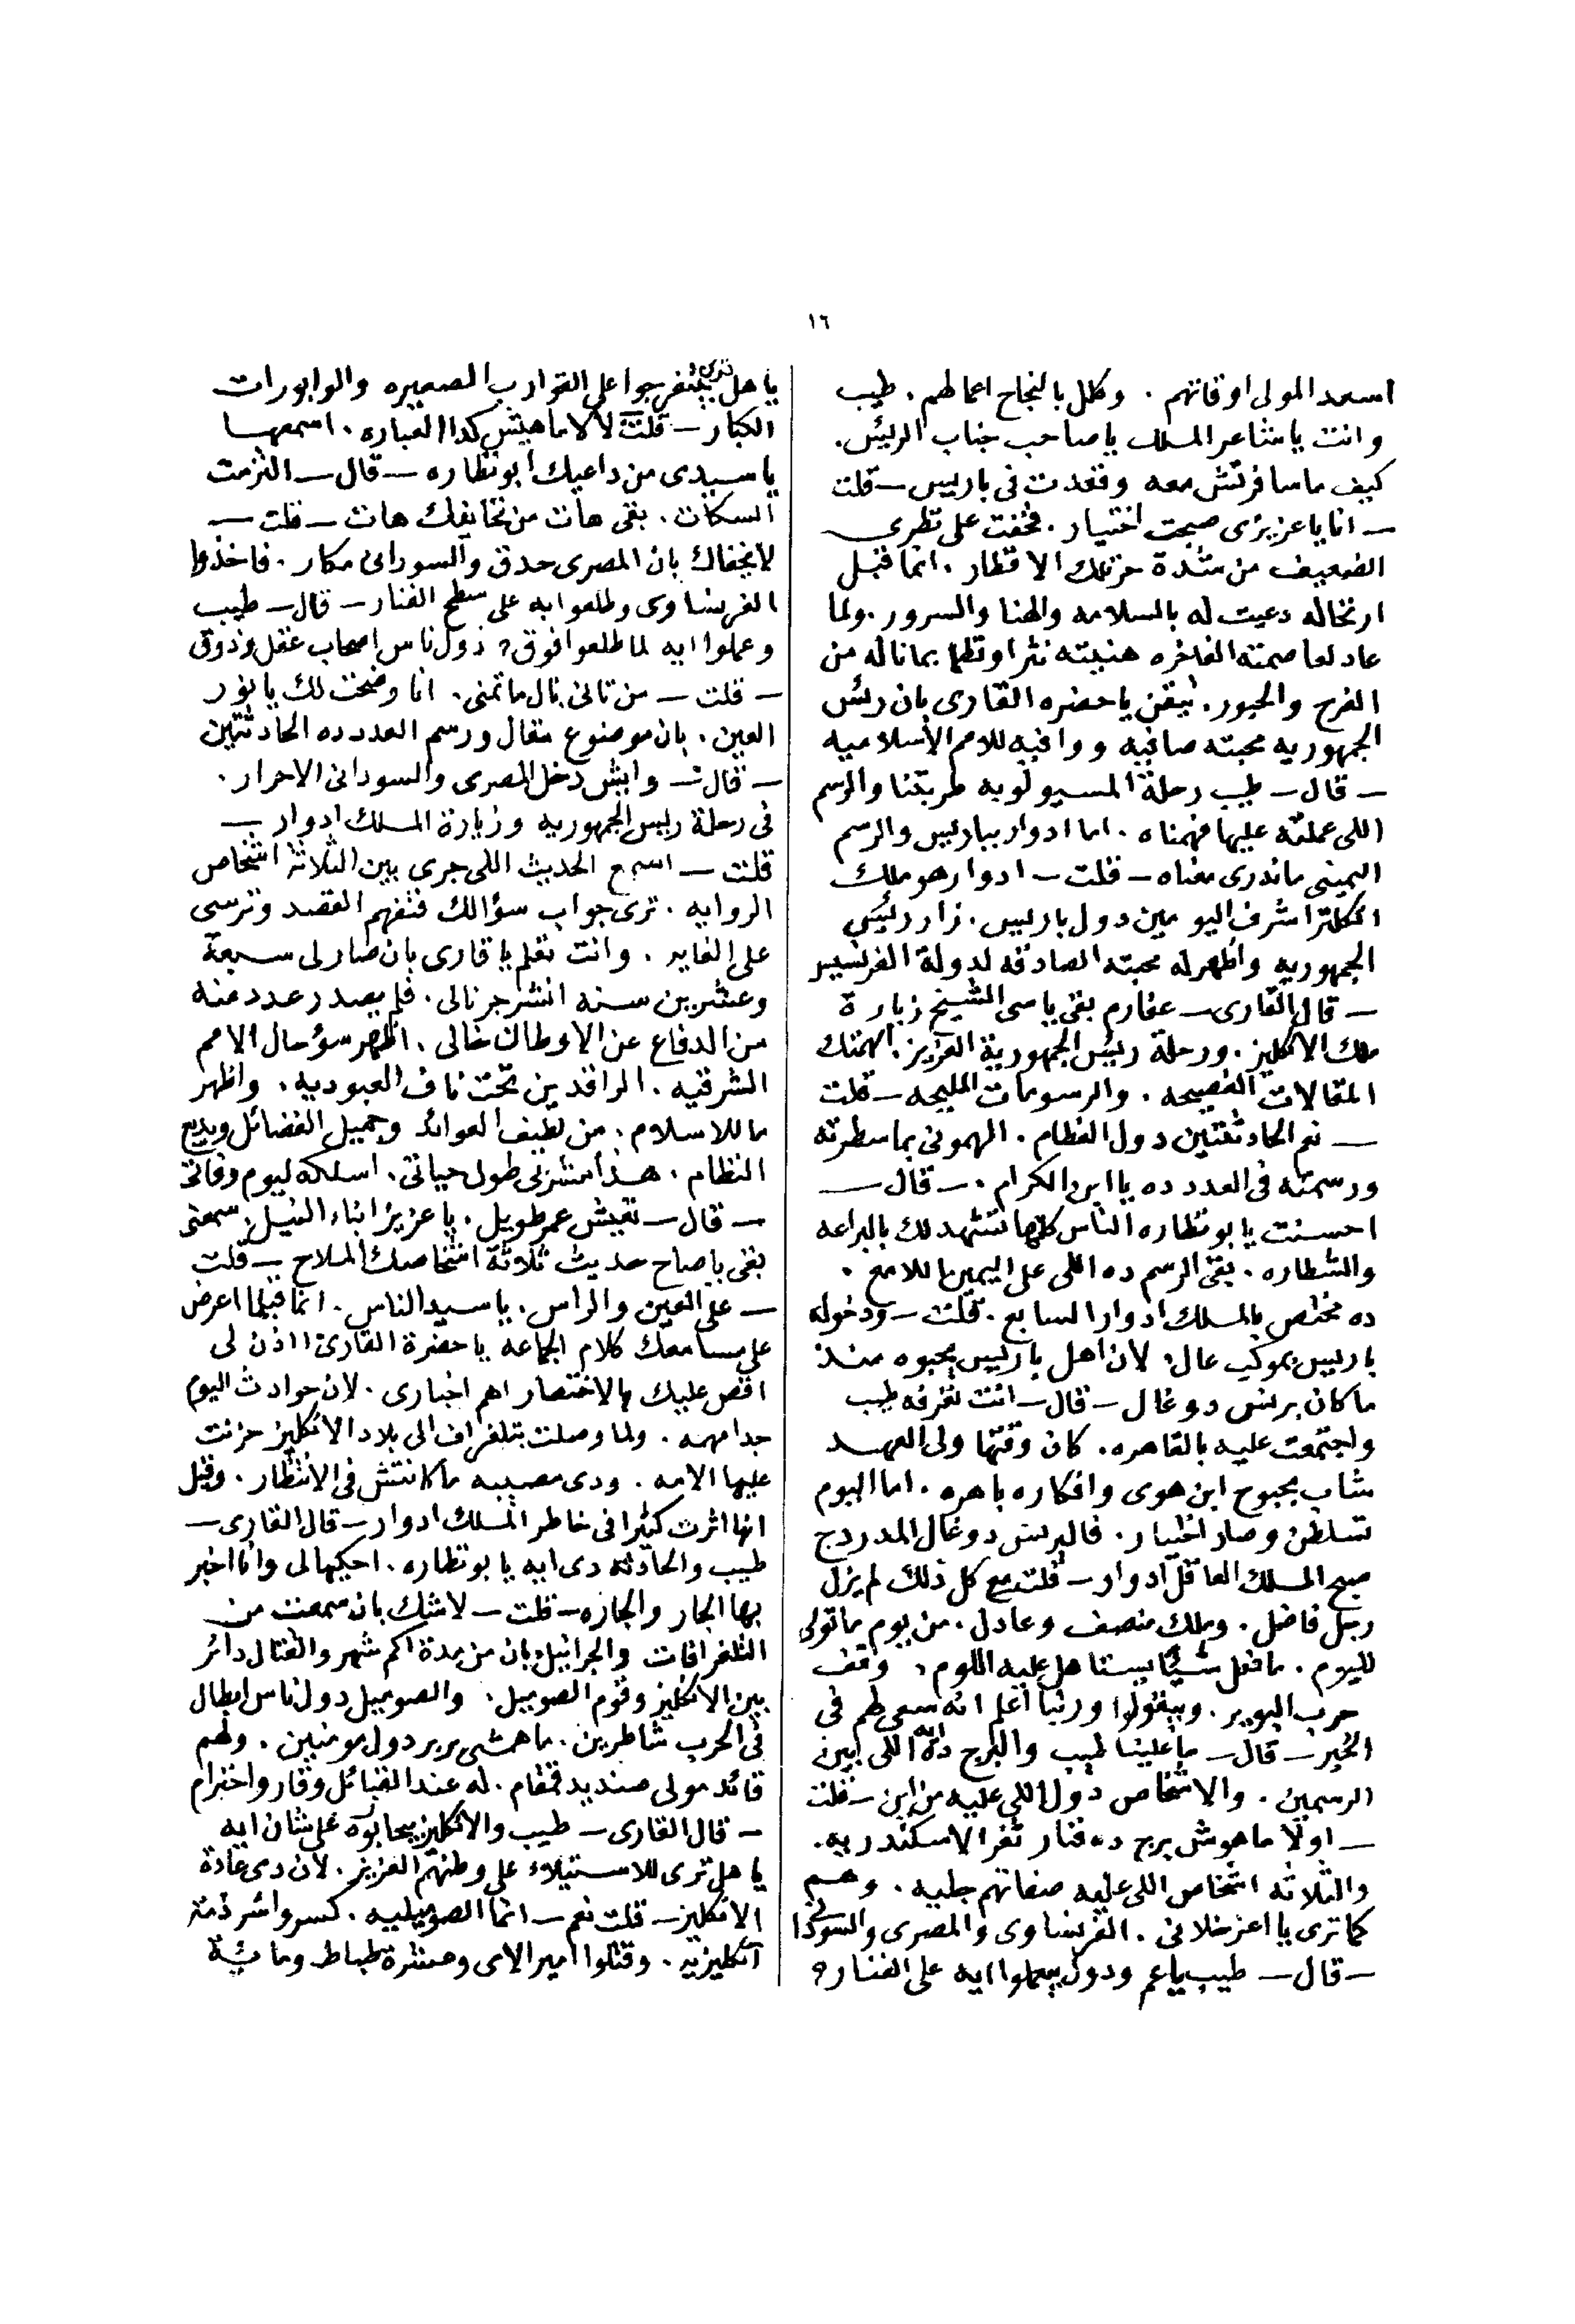 ١٦
اسعد المولى اوقاتهم . وكلل بالنجاح اعمالهم . طيب
وانت ياشاعر الملك ياصاحب جناب الرئيس .
كيف ماسافرتش معه وقعدت فى باريس – قلت
– انا ياعزيزى صبحت اختيار . فخفت على نظرى
الضعيف من شدة حر تلك الاقطار . انما قبل
ارتحاله دعيت له بالسلامه والهنا والسرور . ولما
عاد لعاصمته الفاخره هنيته نثرا ونظما بما ناله من
الفرح والحبور . تيقن ياحضره القارى بان رئس
الجمهوريه محبته صافيه ووافيه للامم الأسلاميه
– قال – طيب رحلة المسيو لوبه طربتنا والرسم
اللى عملته عليها فهمناه . اما ادوار بباريس والرسم
اليمينى ماندرى معناه – قلت – ادوار هو ملك
انكلترا شرف اليومين دول باريس . زار رئيس
الجمهوريه واظهر له محبته الصادقه لدولة الفرنسيس
– قال القارى – عفارم بقى ياسى الشيخ زيارة
ملك الانكليز . ورحلة رئيس الجمهورية العزيز . الهمتك
المقالات الفصيحه . والرسومات المليحه – قلت
– نعم الحادثتين دول العظام . الهمونى بما سطرته
ورسمته فى العدد ده يا ابن الكرام . – قال –
احسنت يابونظاره الناس كلها تشهد لك بالبراعه
والشطاره . بقى الرسم ده اللى على اليمين اللامع .
ده مختص بالملك ادوار السابع . قلت – ودخوله
باريس بموكب عال . لان اهل باريس يحبوه منذ
ما كان برنس دو غال – قال – انت تعرفه طيب
واجتمعت عليه بالقاهره . كان وقتها ولى العهد
شاب بحبوح ابن هوى وافكاره باهره . اما اليوم
تسلطن وصار اختيار . فالبرنس دو غال المدردح
صبح الملك العاقل ادوار – قلت مع كل ذلك لم يزل
رجل فاضل . وملك منصف وعادل . من يوم ما تولى
لليوم . ما فعل شيئا يستاهل عليه اللوم . وقف
حرب البوير . وبيقولوا وربنا اعلم انه سعى لهم فى
الخير – قال – ما علينا طيب والبرج ده اللى بين
الرسمين . والاشخاص دول اللى عليه من اين – قلت
– اولا ماهوش برج ده فنار ثغر الاسكندريه .
والثلاثه اشخاص اللى عليه صفاتهم جليه . وهم
كما ترى يا اعز خلانى . الفرنساوى والمصرى والسودانى
– قال – طيب ياعم ودول بيعملوا ايه على الفنار ؟
ياهل ترى بيتفرجوا على القوارب الصغيره والوابورات
الكبار – قلت لا لا ماهيش كدا العباره . اسمعها
ياسيدى من داعيك ابونظاره – قال – التزمت
السكات . بقى هات من تحايفك هات – قلت –
لايخفاك بان المصرى حدق والسودانى مكار . فاخذوا
الفرنساوى وطلعوا به على سطح الفنار – قال – طيب
وعملوا ايه لما طلعوا فوق ؟ دول ناس اصحاب عقل وذوق
– قلت – من تانى نال ما تمنى . انا وضحت لك يانور
العين . بان موضوع مقال ورسم العدد ده الحادثتين
– قال – وايش دخل المصرى والسودانى الاحرار .
فى رحلة رئيس الجمهوريه وزيارة الملك ادوار –
قلت – اسمع الحديث اللى جرى بين الثلاثة اشخاص
الروايه . ترى جواب سؤالك فتفهم القصد وترسى
على الغايه . وانت تعلم ياقارى بان صار لى سبعة
وعشرين سنه انشر جرنالى . فلم يصدر عدد منه
من الدفاع عن الاوطان خالى . اظهر سؤ حال الامم
الشرقيه . الراقدين تحت ناف العبوديه . واظهر
ما للاسلام . من لطيف العوائد وجميل الفضائل وبديع
النظام . هذا مشربى طول حياتى . اسلكه ليوم وفاتى
– قال – تعيش عمر طويل . ياعزيز ابناء النيل . سمعنى
بقى ياصاح حديث ثلاثة اشخاصك الملاح – قلت
– على العين والراس . ياسيد الناس . انما قبلما اعرض
على مسامعك كلام الجماعه ياحضرة القارئ ائذن لى
اقص عليك بالاختصار اهم اخبارى . لان حوادث اليوم
جدا مهمه . ولما وصلت بتلغراف الى بلاد الانكليز حزنت
عليها الامه . ودى مصيبه ما كانتش فى الانتظار . وقيل
انها اثرت كثيرا فى خاطر الملك ادوار – قال القارى –
طيب والحادثه دى ايه يابونظاره . احكيها لى وانا اخبر
بها الجار والجاره – قلت – لاشك بان سمعت من
التلغرافات والجرانيل بان من مدة اكم شهر والقتال دائر
بين الانكليز وقوم الصوميل . والصوميل دول ناس ابطال
فى الحرب شاطرين . ماهمشى بربر دول مومنين . ولهم
قائد مولى صنديد قمقام . له عند القبائل وقار واحترام
– قال القارى – طيب والانكليز بيحاربوه على شان ايه
ياهل ترى للاستيلاء على وطنهم العزيز . لان دى عادة
الانكليز – قلت نعم – انما الصوميليه . كسروا شر ذمة
انكليزيه . وقتلوا امير الاى وعشرة ظباط ومائية